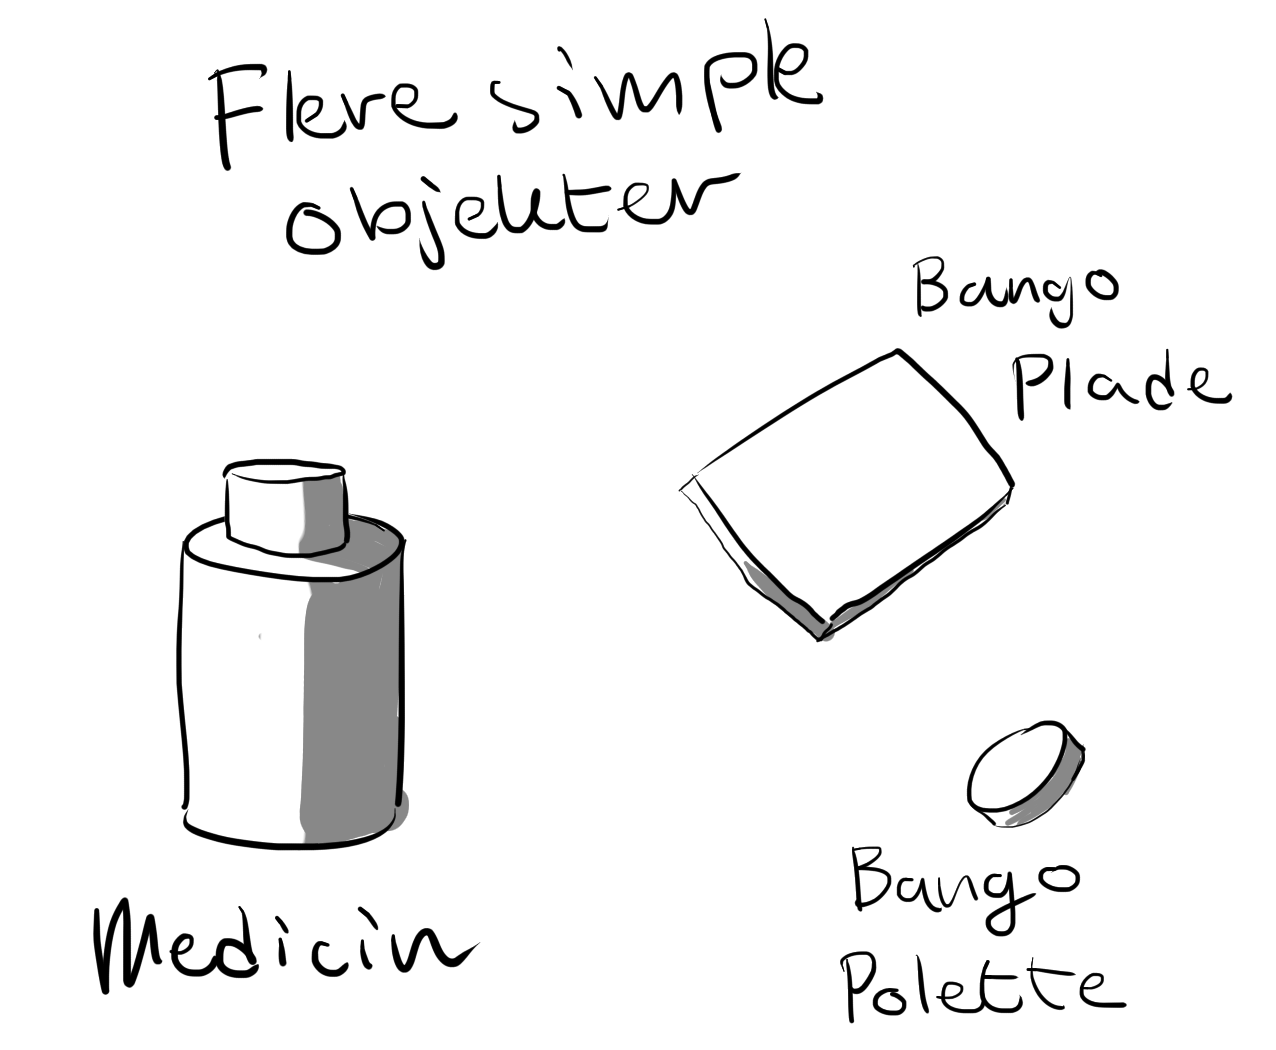 Flere simple
objekter
Bango
Plade
Medicin
Bango
Polette